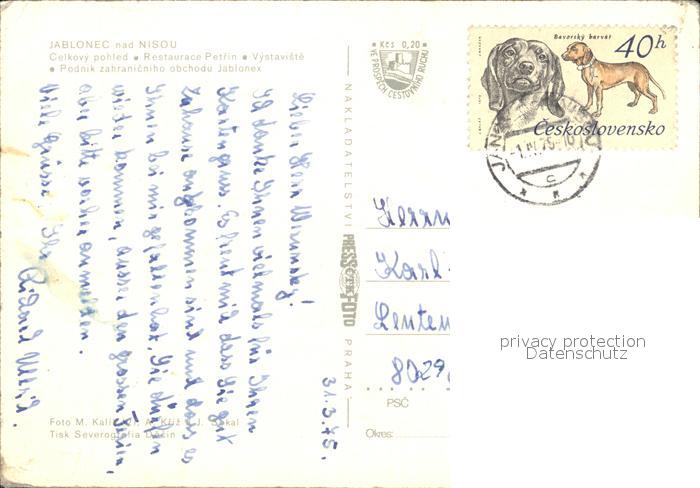 JABLONEC nad NISOU
Celkový pohled ▪ Restaurace Petřín ▪ Výstaviště
▪ Podnik zahraničního obchodu Jablonex
Kčs 0,20
VE PROSPĚCH CESTOVNÍHO RUCHU
Bavorský barvář
40h
Československo
31.3.75.
Lieber Herr
Ich danke Ihnen vielmals für Ihren
Kartengruss. Es freut mich dass Sie gut
zuhause angekommen sind und dass es
Ihnen bei mir gefallen hat. Sie dürfen
wieder kommen, ausser den grossen Ferien,
aber bitte vorher anmelden.
Viele Grüsse Ihr
NAKLADATELSTVÍ
PRESSFOTO
PRAHA
Herrn
Karl
8029
PSČ
Okres:
Foto M. A. Kříž J.
Tisk Severografia Děčín
privacy protection
Datenschutz